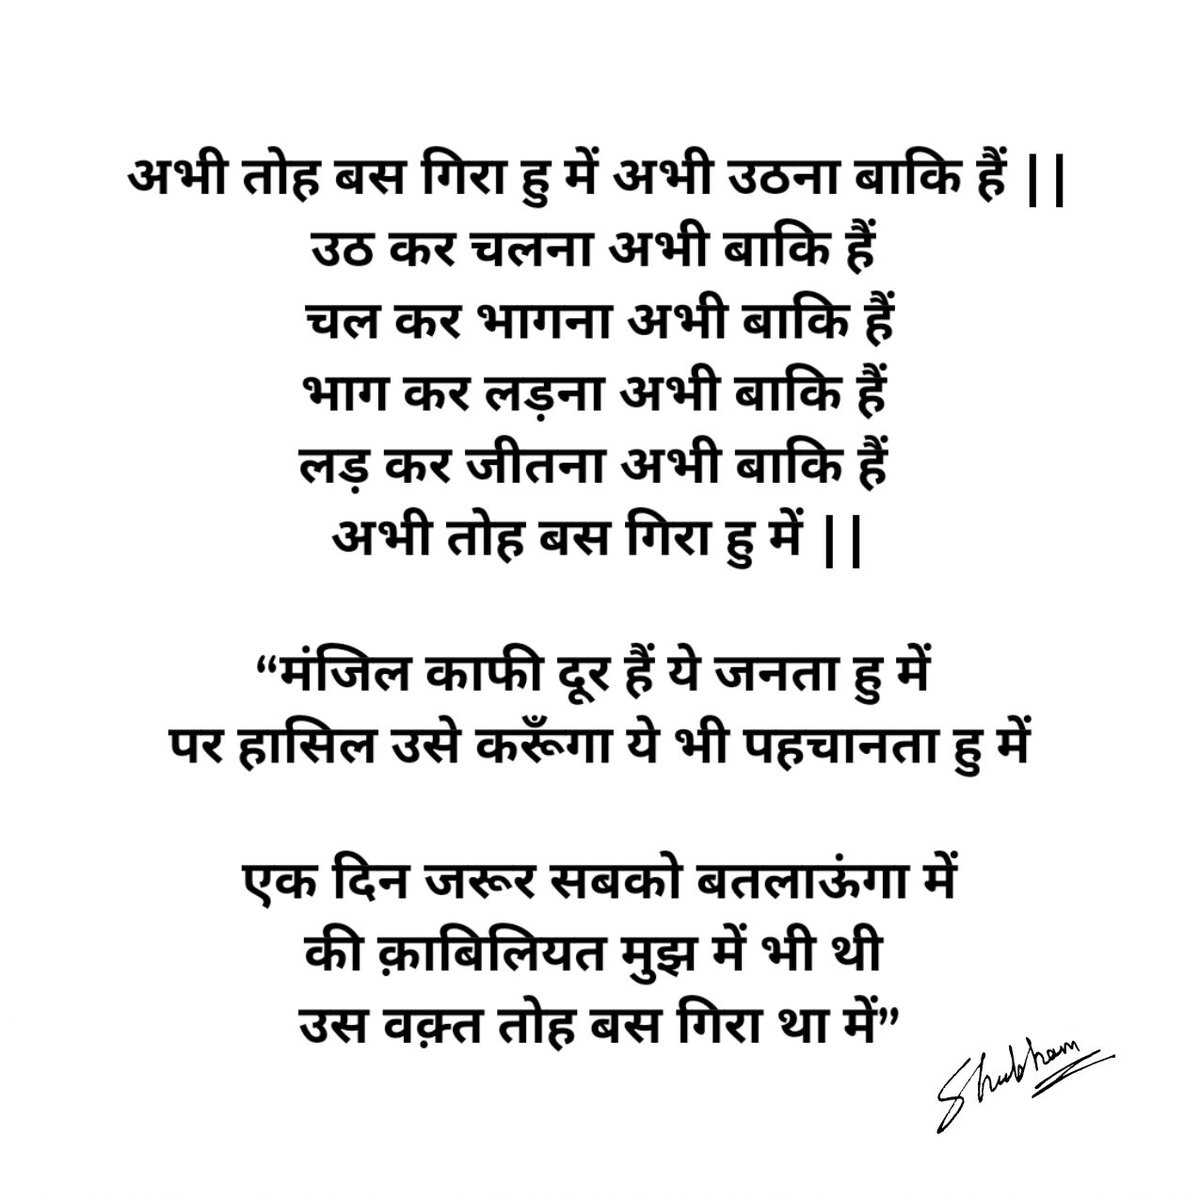 अभी तोह बस गिरा हु में अभी उठना बाकि हैं ||
उठ कर चलना अभी बाकि हैं
चल कर भागना अभी बाकि हैं
भाग कर लड़ना अभी बाकि हैं
लड़ कर जीतना अभी बाकि हैं
अभी तोह बस गिरा हु में ||
“मंजिल काफी दूर हैं ये जनता हु में
पर हासिल उसे करूँगा ये भी पहचानता हु में
एक दिन जरूर सबको बतलाऊंगा में
की क़ाबिलियत मुझ में भी थी
उस वक़्त तोह बस गिरा था में”
Shubham